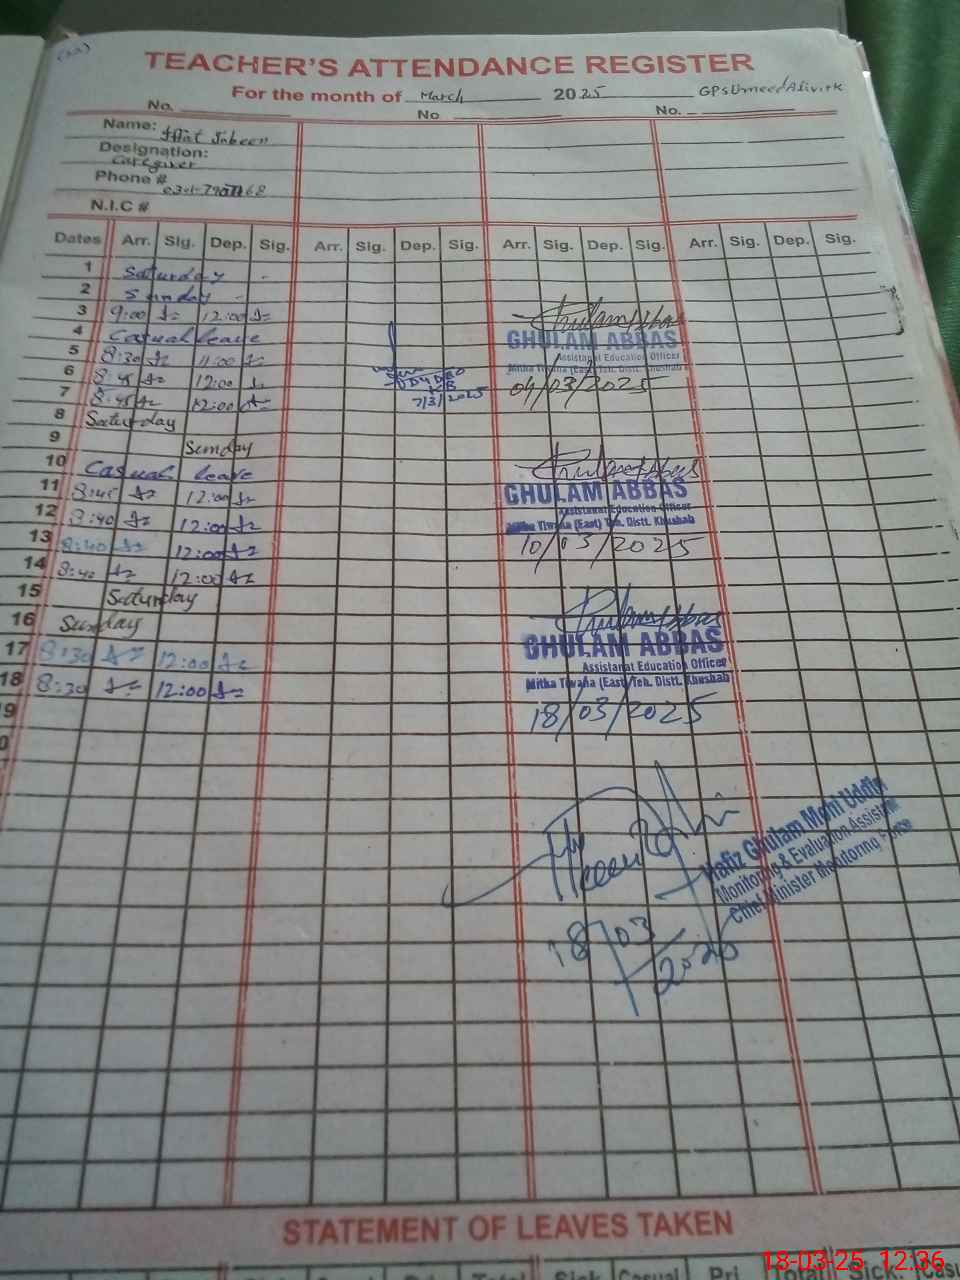 TEACHER'S ATTENDANCE REGISTER
For the month of March 2025
No. No No.
Name:
Designation: Caregiver
Phone #
N.I.C #
Dates Arr. Sig. Dep. Sig. Arr. Sig. Dep. Sig. Arr. Sig. Dep. Sig. Arr. Sig. Dep. Sig.
1 Saturday
2 Sunday
3 9:00 12:00
4 Casual leave
5 8:30 11:00
6 8:45 12:00
7 8:45 12:00
8 Saturday
9 Sunday
10 Casual leave
11 8:45 12:00
12 8:40 12:00
13 8:40 12:00
14 8:40 12:00
15 Saturday
16 Sunday
17 8:30 12:00
18 8:30 12:00
7/3/2025
Ghulam Abbas
GHULAM ABBAS
Assistanat Education Officer
Mitha Tiwana (East) Teh. Distt. Khushab
04/03/2025
Ghulam Abbas
GHULAM ABBAS
Assistanat Education Officer
Mitha Tiwana (East) Teh. Distt. Khushab
10/03/2025
Ghulam Abbas
GHULAM ABBAS
Assistanat Education Officer
Mitha Tiwana (East) Teh. Distt. Khushab
18/03/2025
Hafiz Ghulam Mohi Uddin
Monitoring & Evaluation Assistant
Chief Minister Monitoring Force
18/03/2025
STATEMENT OF LEAVES TAKEN
18-03-25 12:36